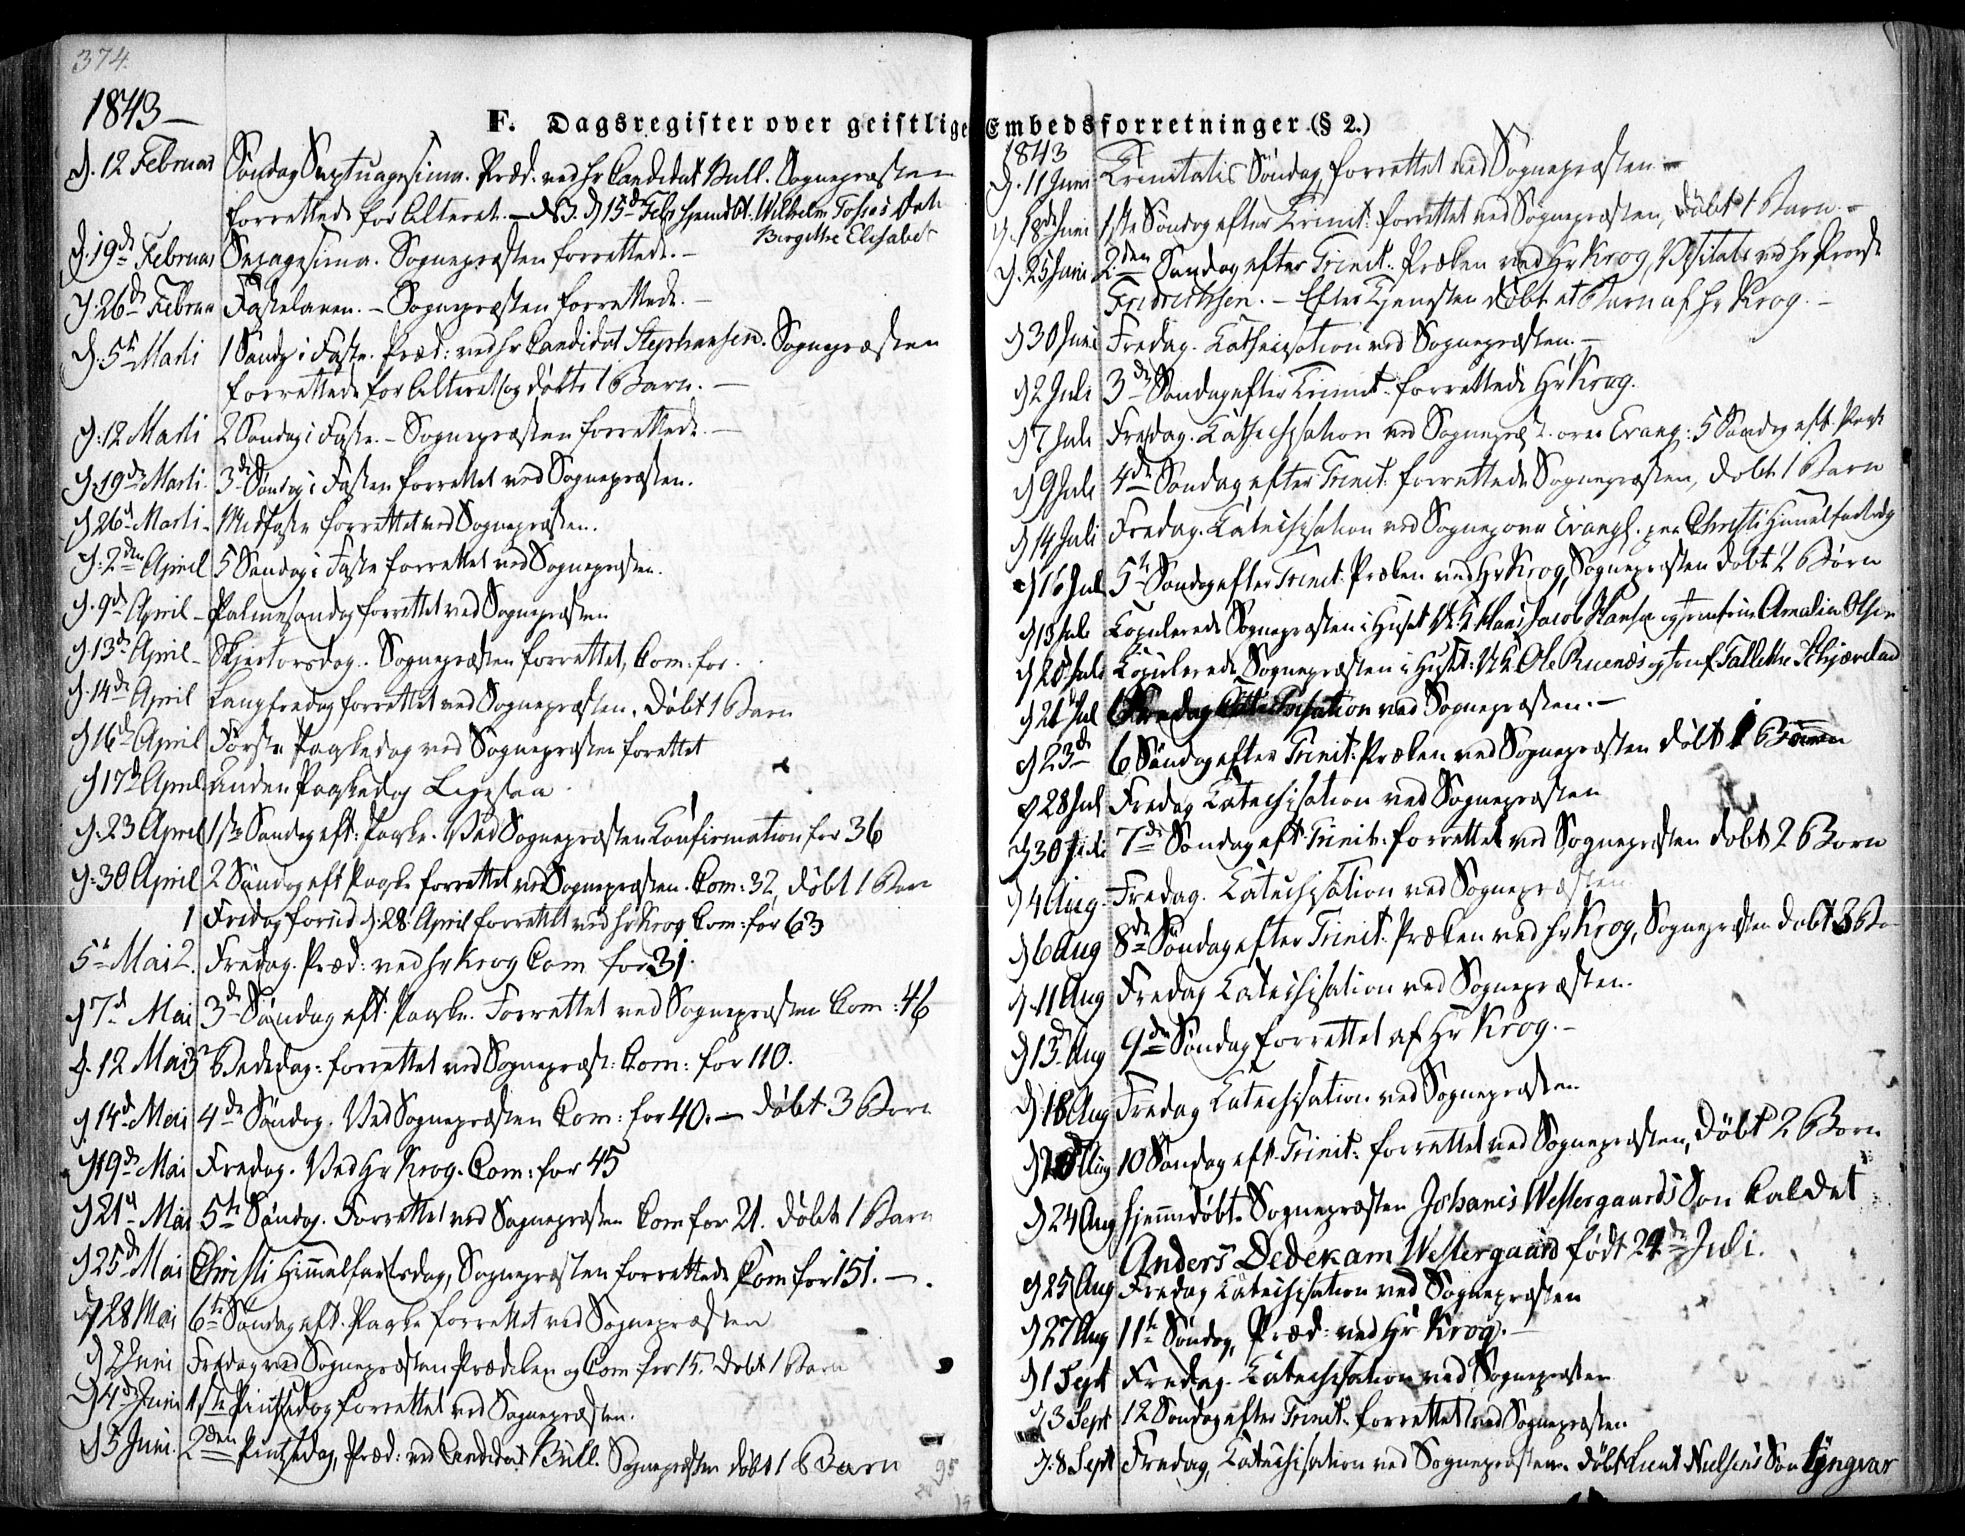 374.
1843 —
F. Dagsregister over geistlige Embedsforretninger (§ 2.)
d. 12 Februar Søndag Septuagesima. Præd. ved Hr Candidat Bull. Sognepræsten
forrettede for Alteret. — d 15d Feb Hjemdøbt Wilhelm
Birgithe Elisabet
d. 19de Februar Sexagesima. Sognepræsten forrettede. —
d. 26de Februar Fastelavn. — Sognepræsten forrettede. —
d. 5te Marti 1 Søndg i Faste. Præd: ved Hr Candidat Stephansen. Sognepræsten
forrettede for Alteret og døbte 1 Barn. —
d. 12 Marti 2 Søndag i Faste. — Sognepræsten forrettede. —
d. 19de Marti 3de Søndag i Fasten forrettet ved Sognepræsten.
d 26d Marti. Midfaste forrettet ved Sognepræsten.
d. 2den April 5 Søndag i Faste forrettet ved Sognepræsten.
d. 9de April — Palmesøndag forrettet ved Sognepræsten
d. 13de April — Skjertorsdag. Sognepræsten forrettet, Com: for.
d. 14de April Langfredag forrettet ved Sognepræsten. Døbt 1 Barn
d 16de April Første Paaskedag ved Sognepræsten forettet
d 17de April Anden Paaskedag Ligesaa
d. 23 April 1ste Søndag eft: Paaske. Ved Sognepræsten Konfirmation for 36
d. 30 April 2 Søndag eft Paaske forrettet ved Sognepræsten. Com: 32, døbt 1 Barn
1 Fredag forud d. 28 April forrettet ved Hr Krog Com: for 63
5te Mai 2. Fredag. Præd: ved Hr Krog Com for 31.
d 7de Mai 3de Søndag eft: Paaske. Forrettet ved Sognepræsten Com: 46
d. 12 Mai 3 Bededag: forrettet ved Sognepræst: Com: for 110.
d. 14de Mai 4de Søndag. Ved Sognepræsten Com: for 40. — døbt 3 Børn
d 19de Mai Fredag. Ved Hr Krog. Com: for 45
d 21d Mai 5te Søndag. Forrettet ved Sognepræsten Com for 21. døbt 1 Barn
d 25de Mai Christi Himmelfartsdag, Sognepræsten forrettede Com: for 151. —
d 28 Mai 6te Søndag eft. Paaske forrettet ved Sognepræsten
d 2 Juni Fredag ved Sognepræsten Prædiken og Com for 15. Døbt 1 Barn
d 4de Juni 1ste Pintsedag forrettet ved Sognepræsten.
d 5 Juni. 2den Pintsedag, Præd: ved Candidat Bull. Sognepræsten døbt 1 Barn
1843
d. 11 Juni Trinitatis Søndag forrettet ved Sognepræsten —
d. 18de Juni 1ste Søndag efter Trinit: forrettet ved Sognepræsten, døbt 1 Barn —
d. 25 Juni 2den Søndag efter Trinit: Præken ved Hr Krog, Visitats ved Hr Provst
Fridrichsen. — Efter Tjenesten døbt et Barn af Hr Krog. —
d 30 Juni Fredag. Cathechisation ved Sognepræsten. —
d 2 Juli 3de Søndag efter Trinit. forrettede Hr Krog.
d 7 Juli Fredag. Cathechisation ved Sognepræst. over Evang: 5 Søndag eft. Paask
d 9 Juli 4de Søndag efter Trinit: forrettede Sognepræsten, døbt 1 Barn
d 14 Juli Fredag. Catechisation ved Sognep over Evangl. paa Christi Himmelfartsdg
d 16 Jul 5te Søndag efter Trinit. Præken ved Hr Krog, Sognepræsten døbt 2 Børn
Juli Copulerede Sognepræsten i Huset Hans Jacob Hansen og Jomfrue Amalia Olsen
Juli Copulerede Sognepræsten i Huset: Ole Ruenæs og Jomf. Tallette Schjævelad
d 21 Jul Fredag Catechisation ved Sognepræsten. —
d 23de 6 Søndag efter Trinit: Præken ved Sognepræsten døbt 1 Barn
d 28 Jul Fredag Catechisation ved Sognepræsten
d 30 Juli 7de Søndag eft. Trinit: forrettet ved Sognepræsten døbt 2 Børn
d 4 Aug. Fredag. Catechisation ved Sognepræsten
d 6 Aug 8de Søndag efter Trinit: Præken ved Hr Krog, Sognepræsten døbt 3 Bø
d. 11 Aug Fredag Catechisation ved Sognepræsten.
d 13de Aug 9de Søndag forrettet af Hr Krog. —
d 18 Aug Fredag Catechisation ved Sognepræsten
d 20 Aug 10 Søndag eft. Trinit: forrettet ved Sognepræsten, døbt 2 Børn
d 24 Aug hjemmdøbt Sognepræsten Johanes Westergaards Søn kaldet
Anders Dedekam Westergaard født 24de Juli.
d 25 Aug Fredag Catechisation ved Sognepræsten
d 27 Aug 11te Søndag, Præd: ved Hr Krog. —
d 1 Sept Fredag. Catechisation ved Sognepræsten
d 3 Sept 12 Søndag efter Trinit. forrettet ved Sognepræsten
d. 8 Sept Fredag, Catechisation ved Sognepræsten. døbt Lieut Nielsens Søn Yngvar
95